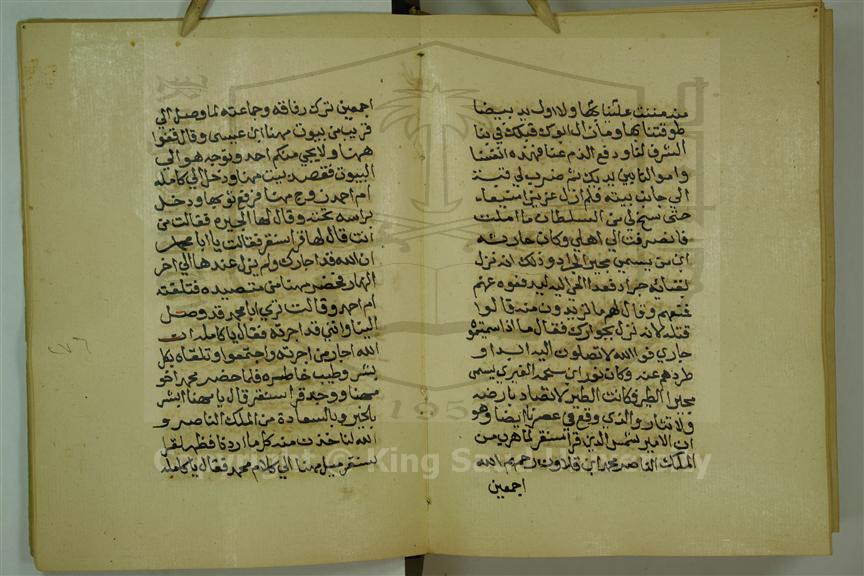 من مننت علينا بها ولا اول يد بيضا
طوقتنا بها وما زال ابوك قبلك في بنا
الشرف لنا ودفع الذم عنا فهذه انفسنا
واموالنا بين يديك ثم ضرب لي قبة
الي جانب بيته فلم ازل عزيزا
حتي سخ لي من السلطان ما املت
فانصرفت الي اهلي وكان حارثه
ابن مر يسمي مجير الجراد وذلك انه نزل
بفنائه جراد فعدا الحي اليه ليدفنوه عنهم
فمنعهم وقال لهم ما تريدون منه قالوا
قتله لانه نزل بجوارك فقال ما اذا سميتموه
جاري فو الله لا تصلون اليه ابدا و
طردهم عنه وكان ثور ابن شحمه العنبري يسمي
مجير الطير فكانت الطير لا تصاد بارضه
ولا تثار والذي وقع في عصرنا ايضا وهو
ان الامير شمس الدين قرا سنقر لما هرب من
الملك الناصر محمد ابن قلاوون رحمهم الله
اجمعين
اجمعين ترك رفاقه وجماعته لما وصل الي
قريب من بيوت مهنا ابن عيسى وقال قفوا
ههنا ولا يجي منكم احد وتوجه هو الي
البيوت فقصد بيت مهنا ودخل الي كامله
ام احمد زوج مهنا فرفع ثوبها ودخل
براسه تحته وقال لها الجيره فقالت من
انت قال لها قرا سنقر فقالت يا ابا محمد
ان الله قد اجارك ولم يزل عندها الي اخر
النهار فحضر مهنا من متصيده فتلقته
ام احمد وقالت تري ابا محمد قد وصل
الينا وانني قد اجرته فقال يا كامله ان
الله اجار من اجرته واجتمعوا وتلقاه بكل
بشر وطيب خاطره فلما حضر محمد اخو
مهنا ووجد قرا سنقر قال يا مهنا ابشر
بالخير وبالسعادة من الملك الناصر و
الله لناخذن منه كل ما اردنا فظهر لقرا
سنقر ميل مهنا الي كلام محمد فقال يا كامله
٢٧٦
Copyright © King Saud University
1957